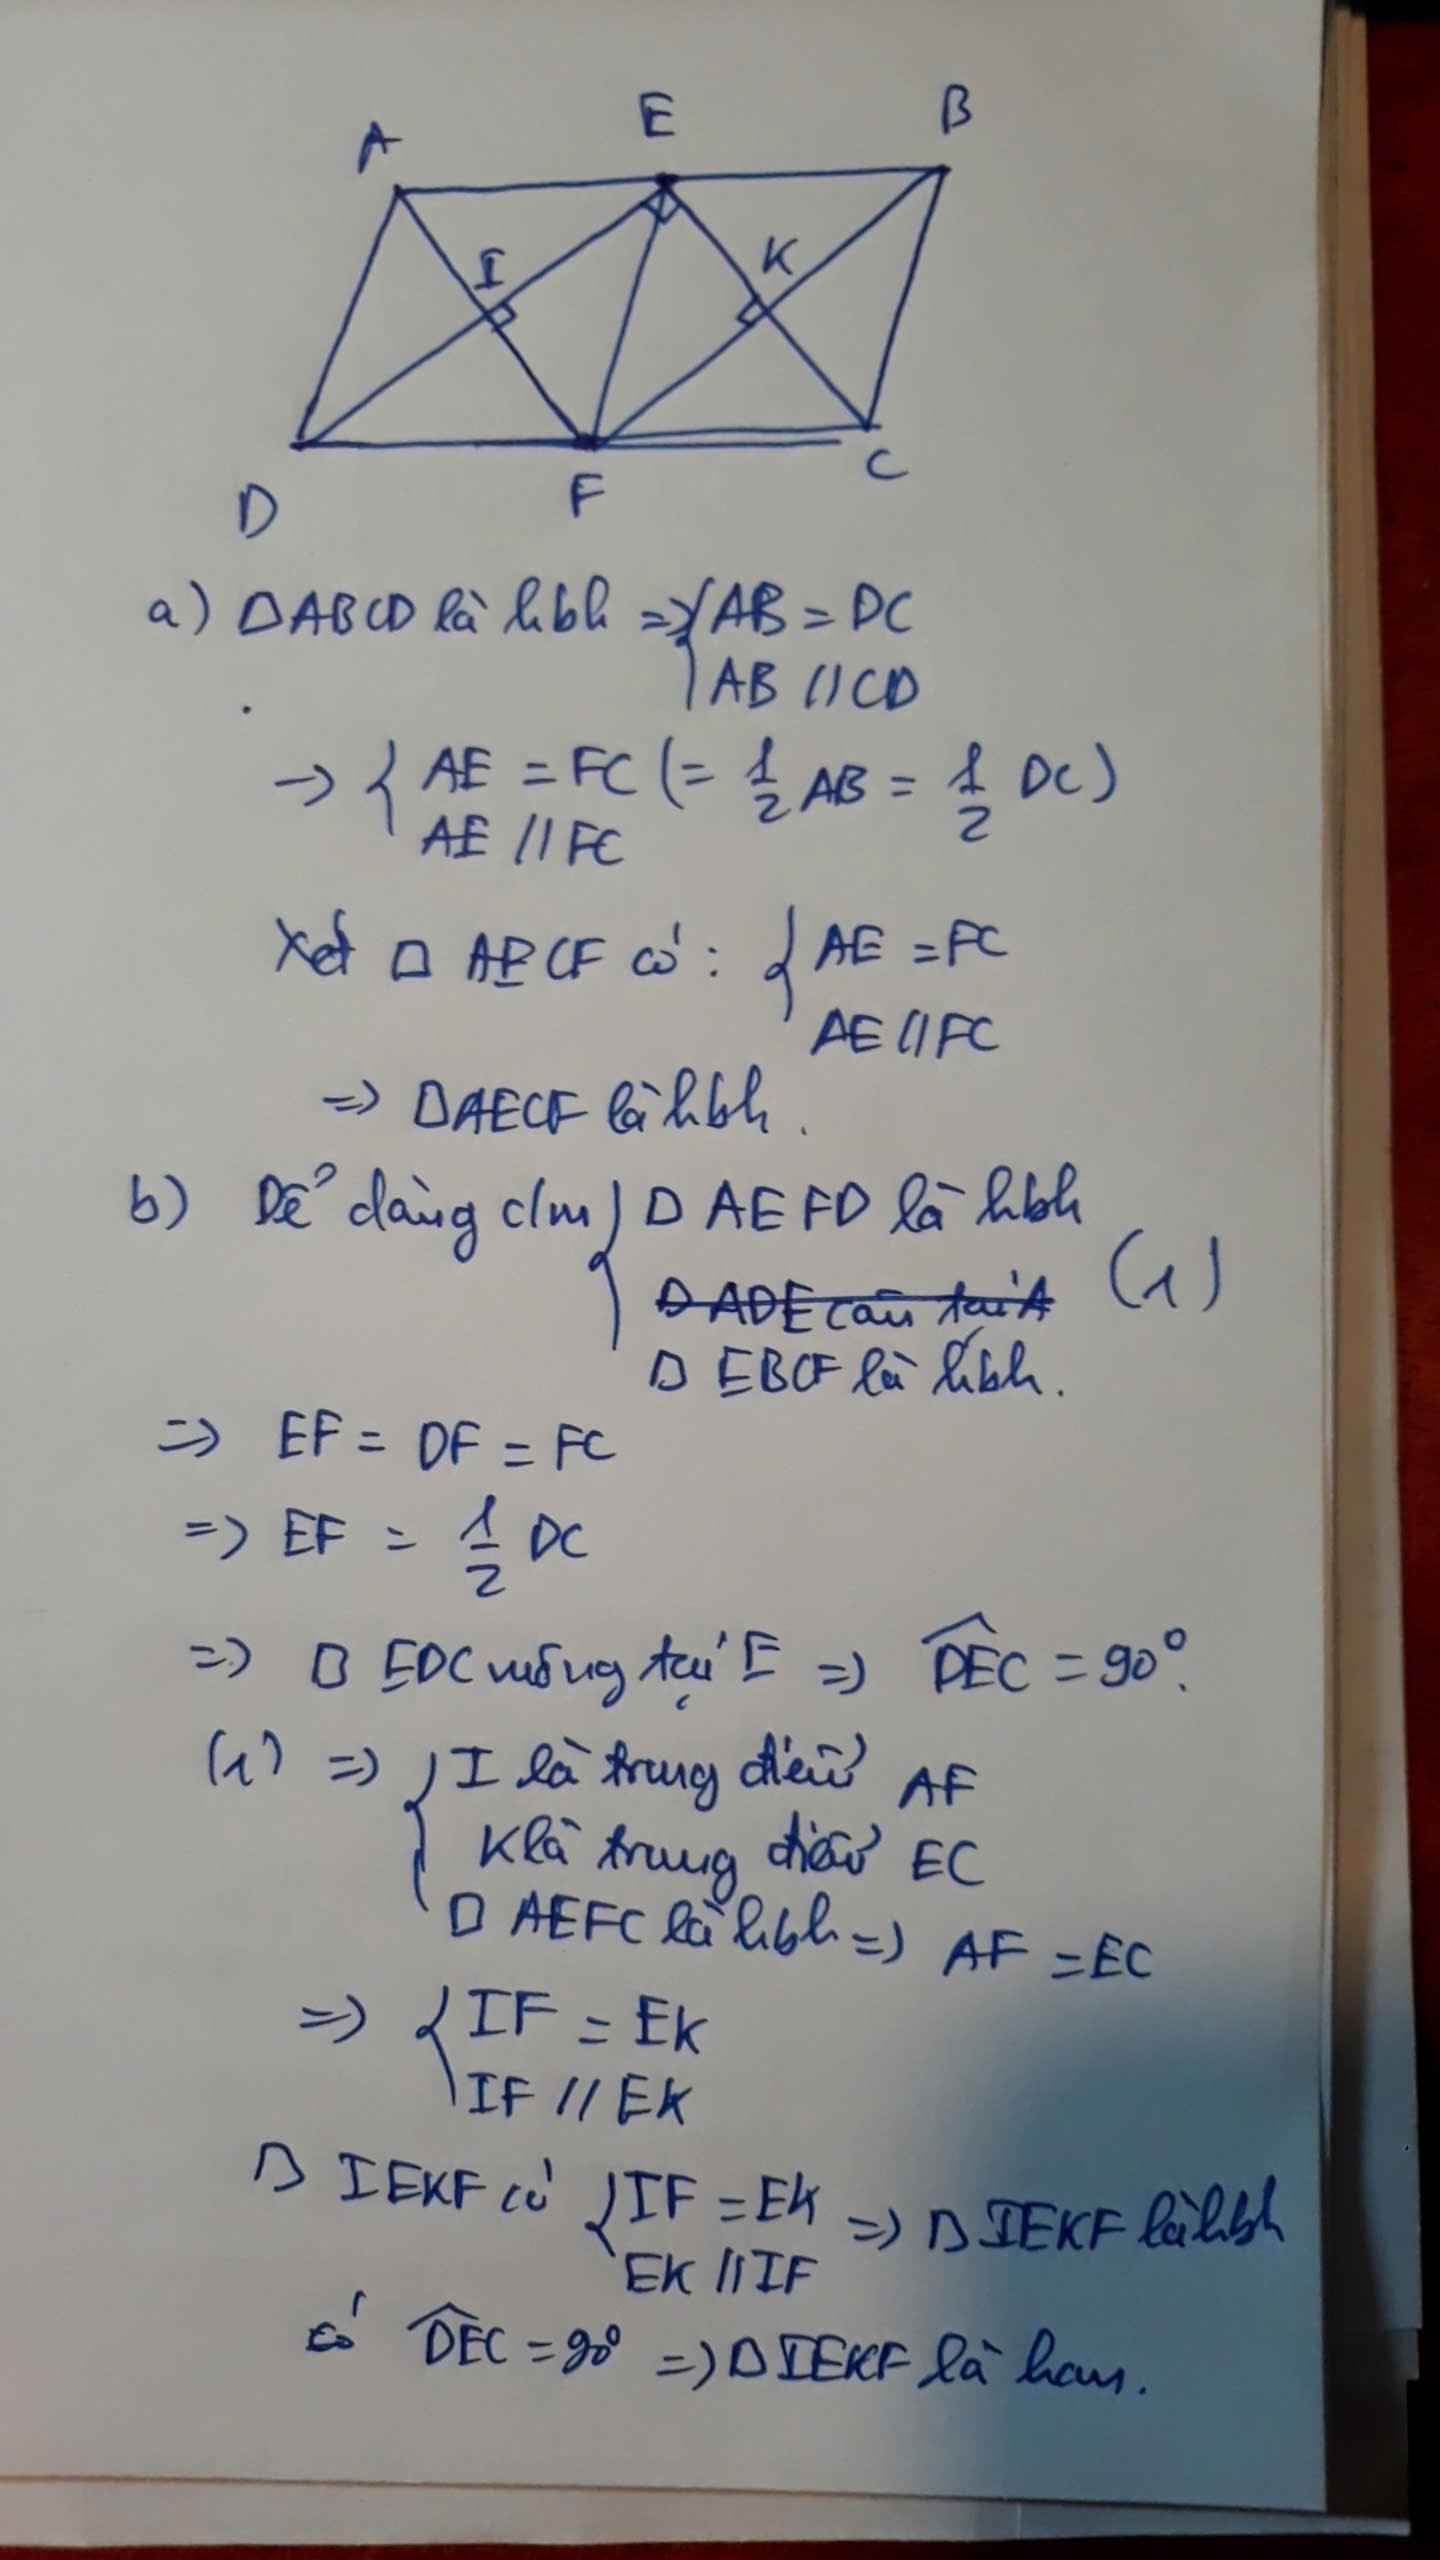 A E B
I K
D F C
a) □ ABCD là hbh => { AB = DC
AB // CD
-> { AE = FC (= 1/2 AB = 1/2 DC)
AE // FC
Xét □ AECF có: { AE = FC
AE // FC
=> □ AECF là hbh.
b) Dễ dàng c/m { □ AEFD là hbh
□ ADE cân tại A (1)
□ EBCF là hbh.
=> EF = DF = FC
=> EF = 1/2 DC
=> △ EDC vuông tại E => DEC = 90°.
(1) => { I là trung điểm AF
K là trung điểm EC
□ AEFC là hbh => AF = EC
=> { IF = EK
IF // EK
□ IEKF có { IF = EK => □ IEKF là hbh
EK // IF
có DEC = 90° => □ IEKF là hcn.